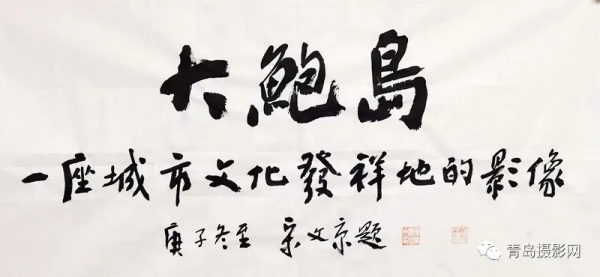 大鮑島
一座城市文化發祥地的影像
庚子冬至 宋文京題
青岛摄影网